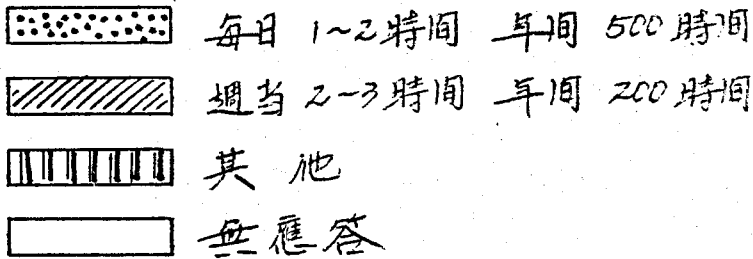 毎日 1~2時間 年间 500時間
週当 2~3時間 年间 200時間
其他
無應答